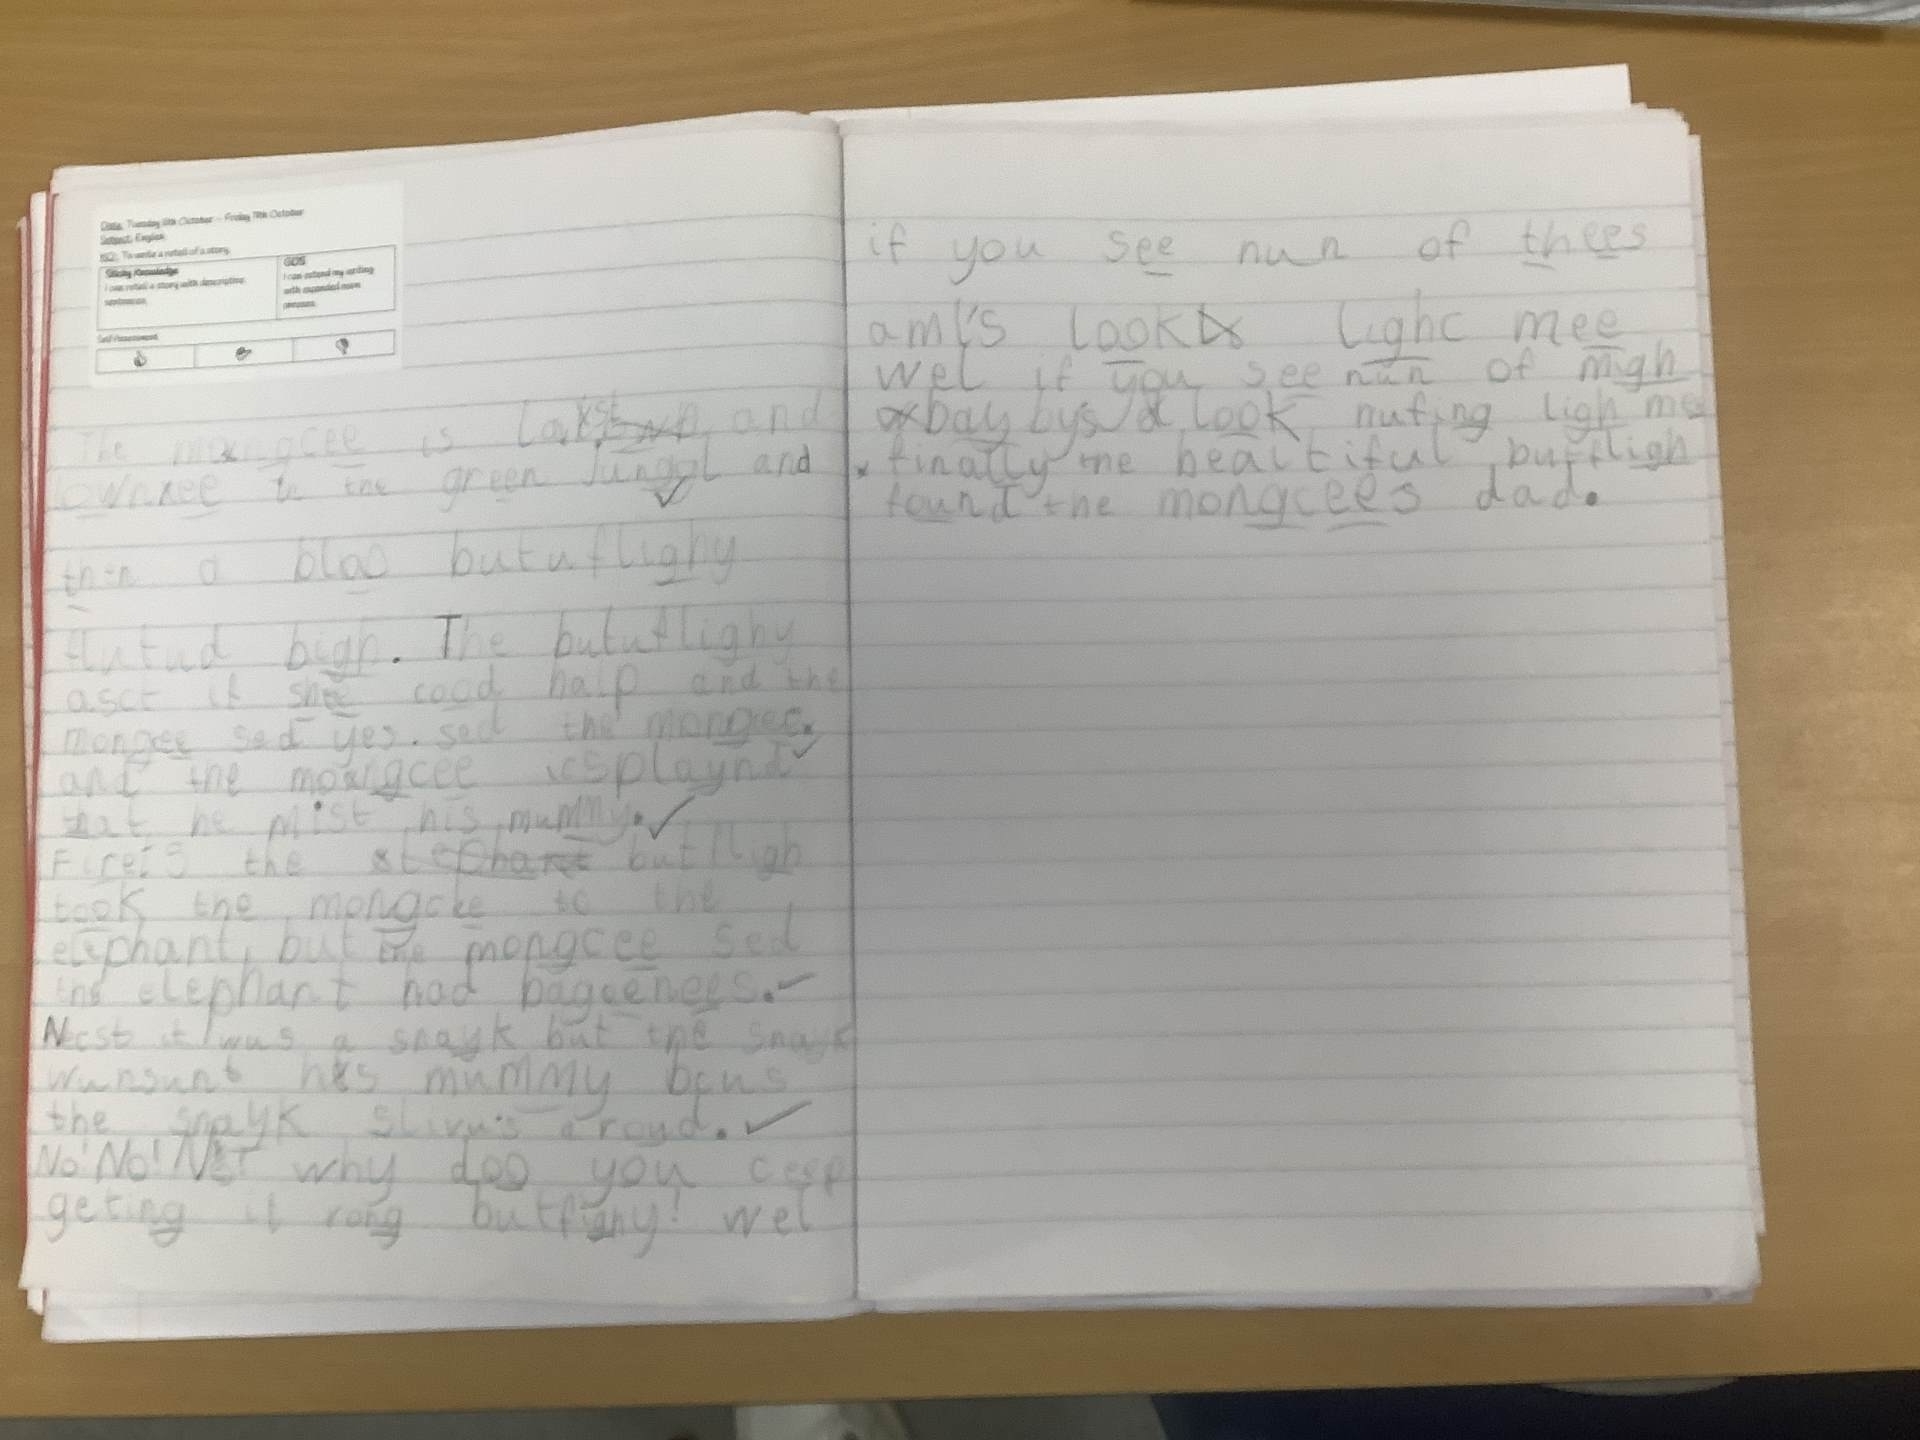 Date: Tuesday 11th October - Friday 14th October
Subject: English
To write a retell of a story.
Sticky Knowledge
I can retell a story with descriptive
sentences.
GDS
I can extend my writing
with expanded noun
phrases.
Self Assessment
The mongcee is and
in the green Jungl and
then a bloo butuflighy
flutud bigh. The butuflighy
asct if shee cood halp and the
mongee sed yes. sed the mongee.
and the mongcee icsplaynd
that he mist his mummy.
Firets the butfligh
took the mongcke to the
elephant, but the mongcee sed
the elephant had bagenees.
Necst it wus a snayk but the snayk
wunsunt his mummy bcus
the snayk slivu's aroyd.
No! No! why doo you ceep
geting it rong butfighy! wel
if you see nun of thees
aml's look lighc mee
wel if you see nun of migh
baybys look nufing ligh mee
finally the beautiful butfligh
found the mongcees dad.